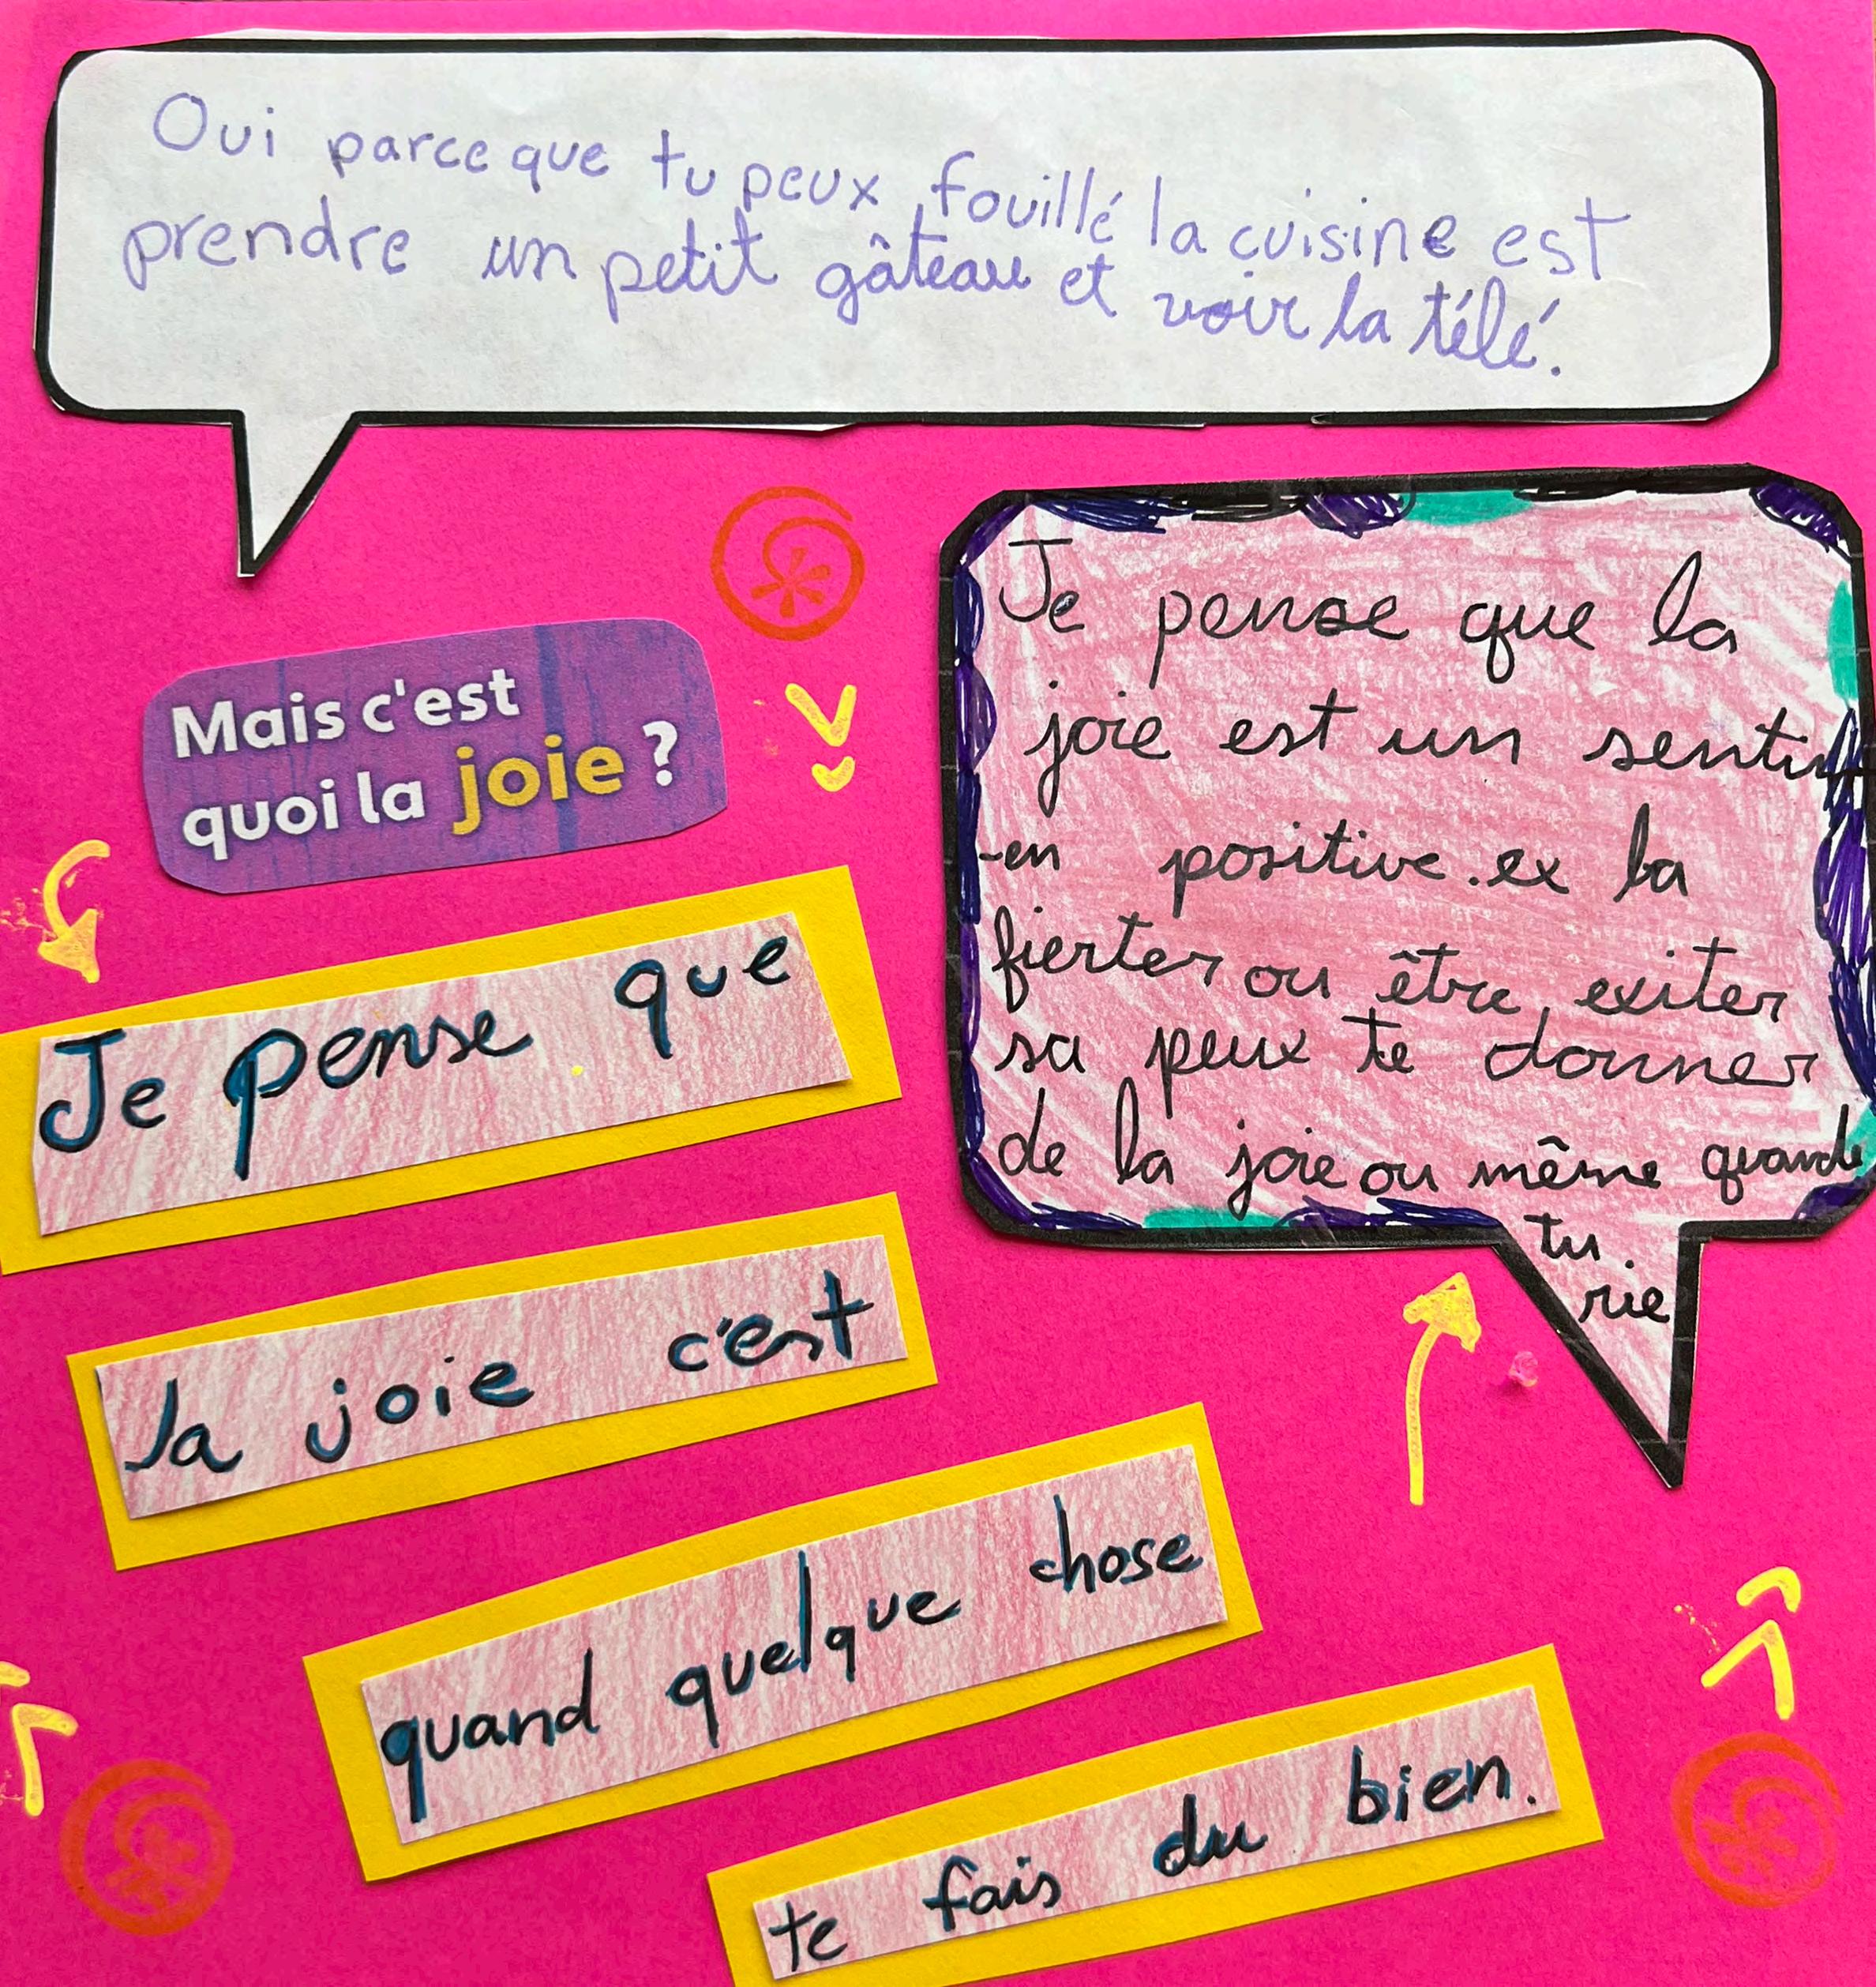 Oui parce que tu peux fouillé la cuisine est
prendre un petit gâteau et voir la télé.
Mais c'est
quoi la joie ?
Je pense que la
joie est un sentim
-en positive. ex la
fierter ou être exiter
sa peux te donner
de la joie ou même quande
tu
rie
Je pense que
la joie c'est
quand quelque chose
te fais du bien.